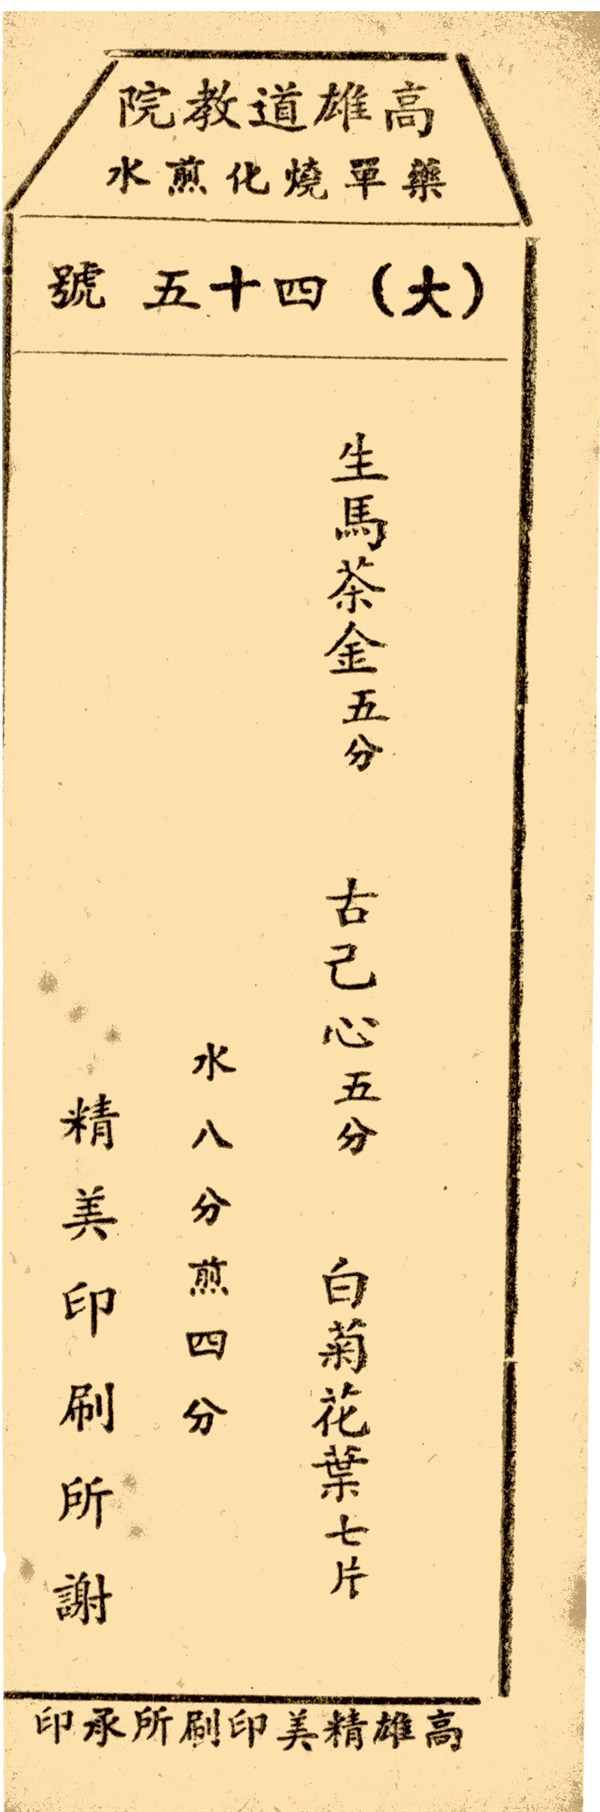 高雄道教院
藥單燒化煎水
(大)四十五 號
生馬茶金五分 古己心五分 白菊花葉七片
水八分煎四分
精美印刷所謝
高雄精美印刷所承印